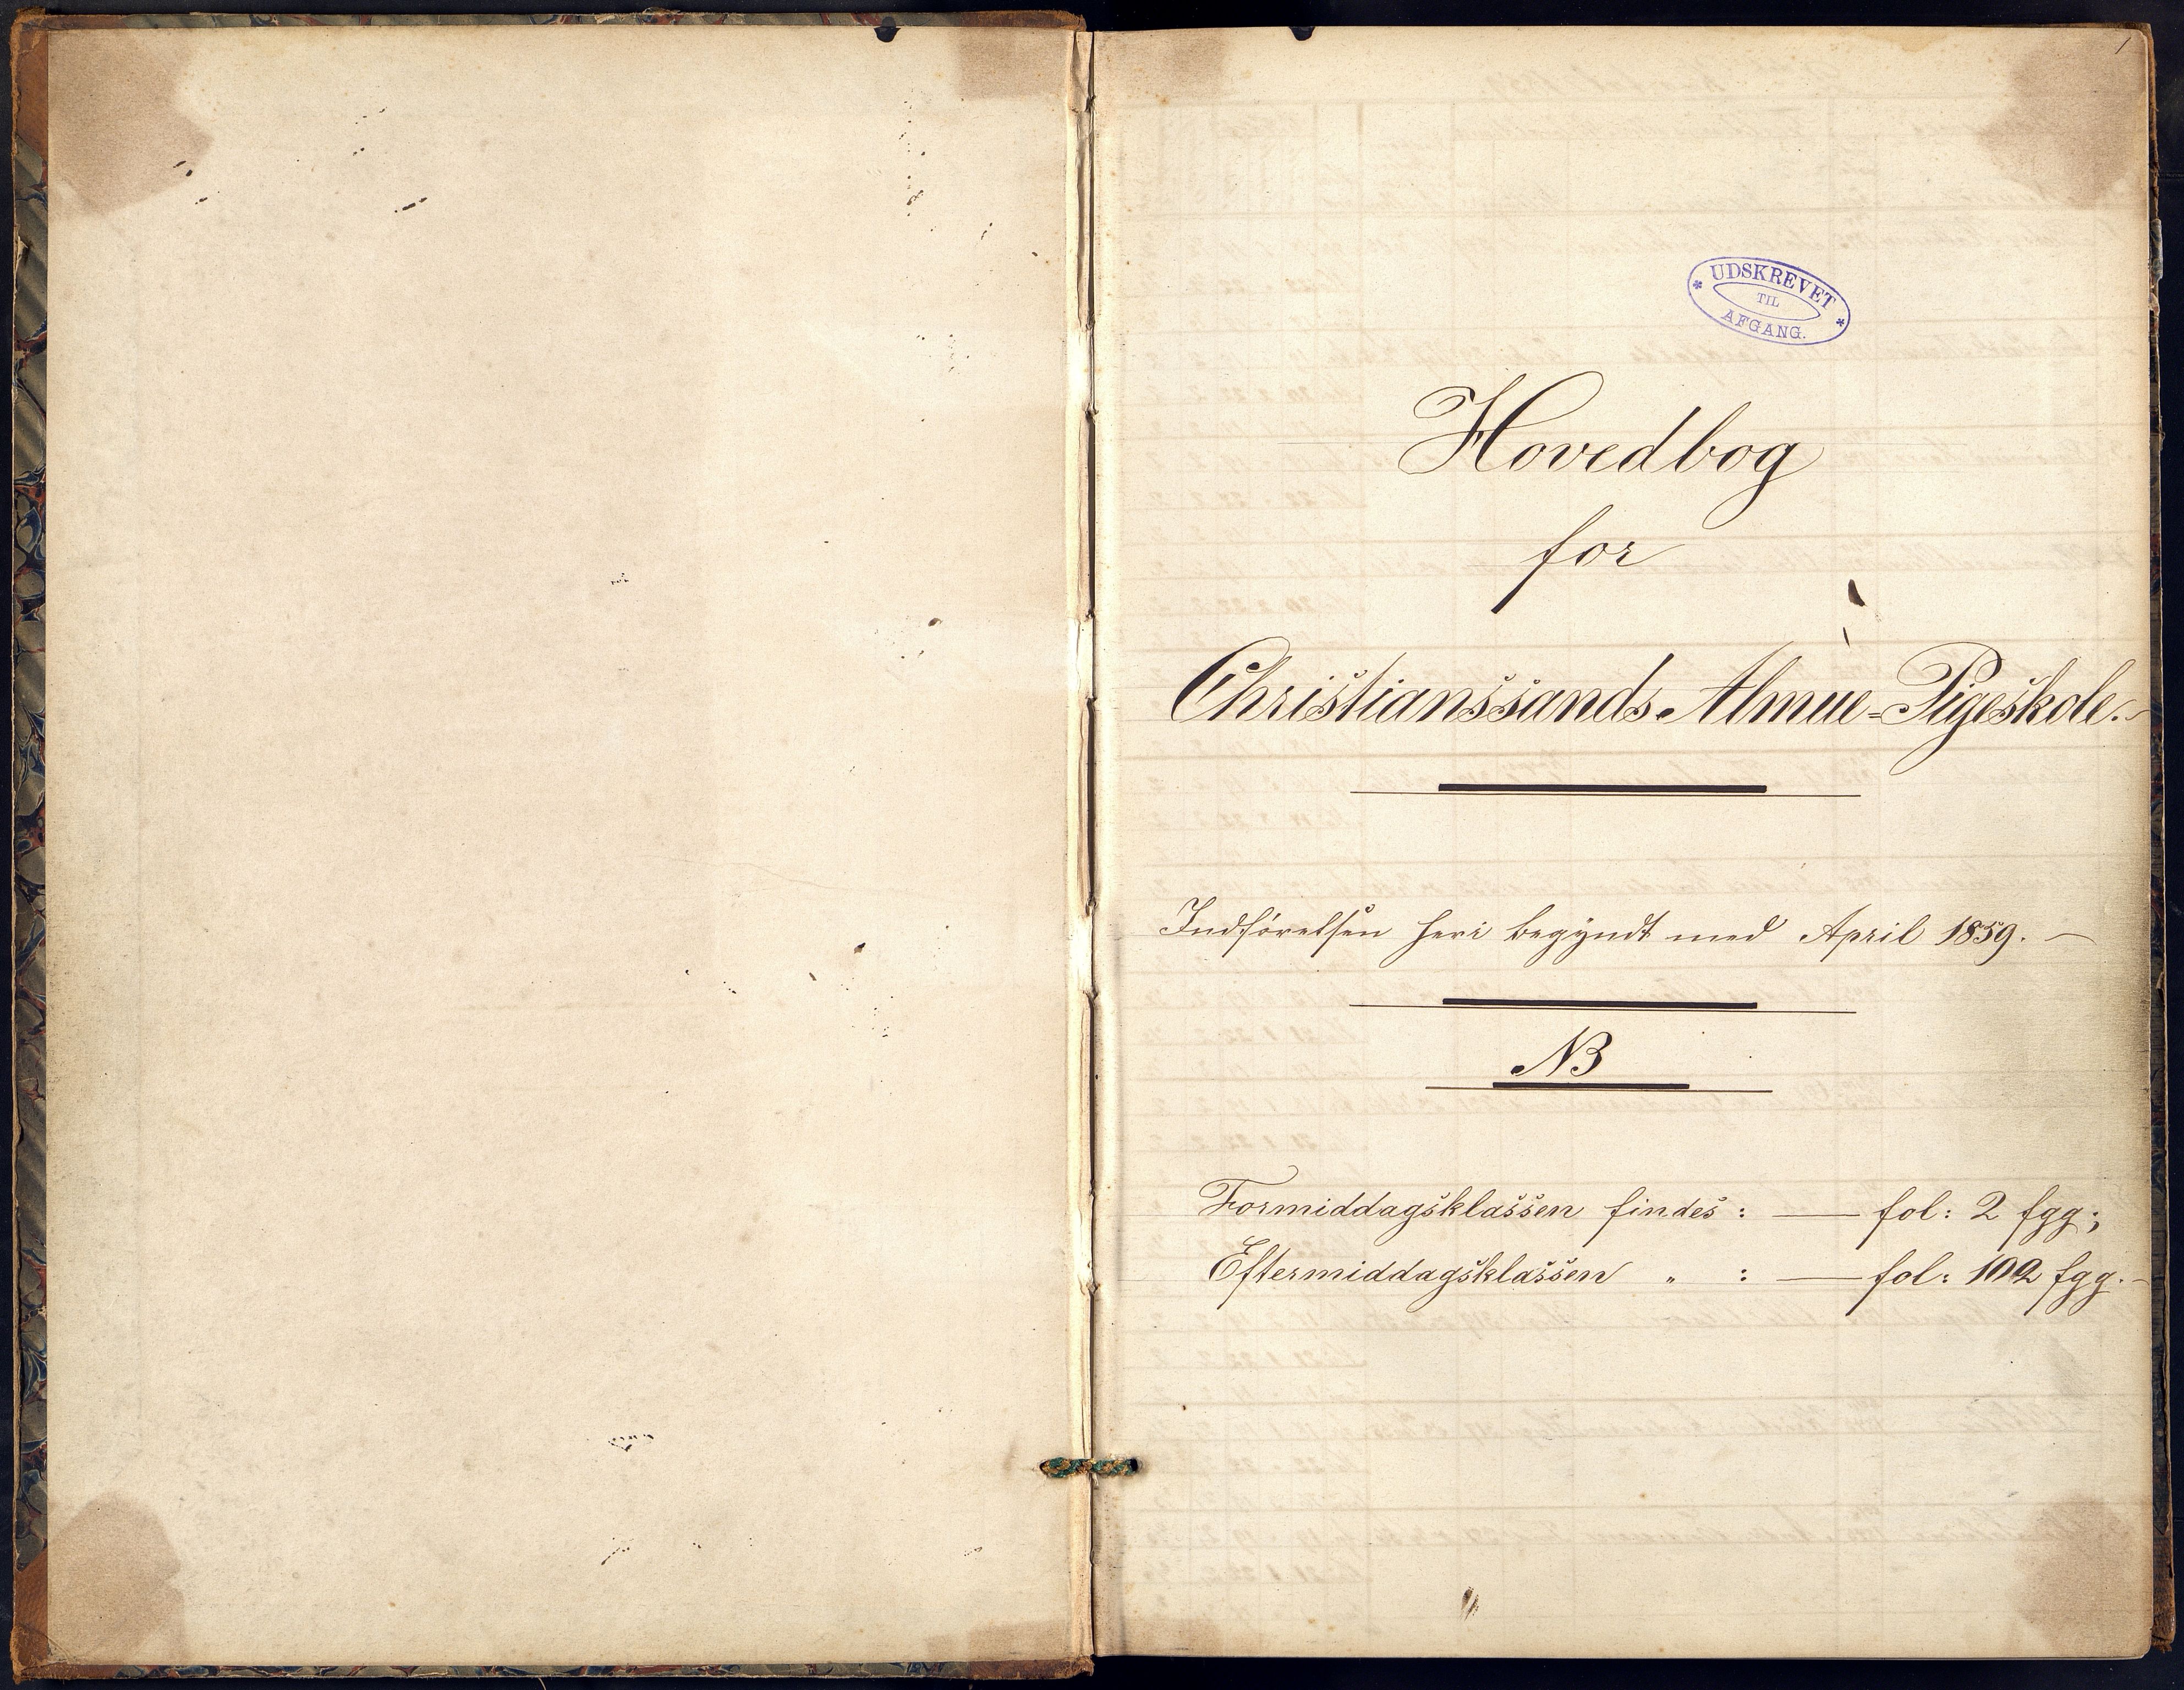 1
UDSKREVET
TIL
AFGANG.
Hovedbog
for
Christianssands Almue-Pigeskole.
Indførelsen heri begyndt med April 1859. —
NB
Formiddagsklassen findes: — fol: 2 fgg;
Eftermiddagsklassen „ : — fol: 102 fgg. —